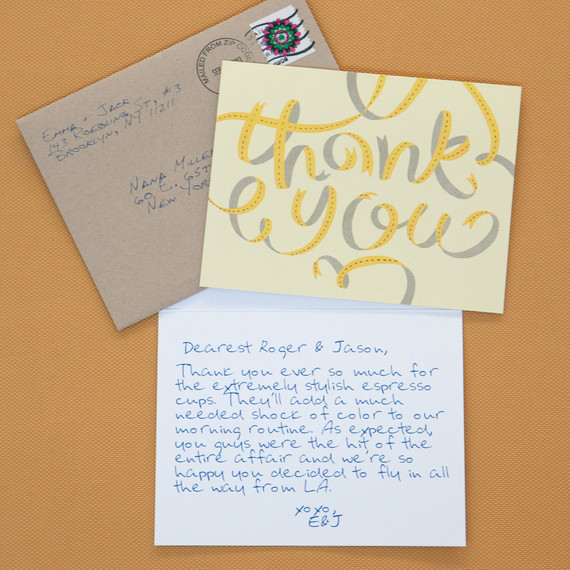 MAILED FROM ZIP CODE
Emma + Jack
143 Roebling St. #3
Brooklyn, NY 11211
Nana Mille
60 E. 65T
New Yor
thank
you
Dearest Roger & Jason,
Thank you ever so much for
the extremely stylish espresso
cups. They'll add a much
needed shock of color to our
morning routine. As expected,
you guys were the hit of the
entire affair and we're so
happy you decided to fly in all
the way from LA.
xoxo,
E&J